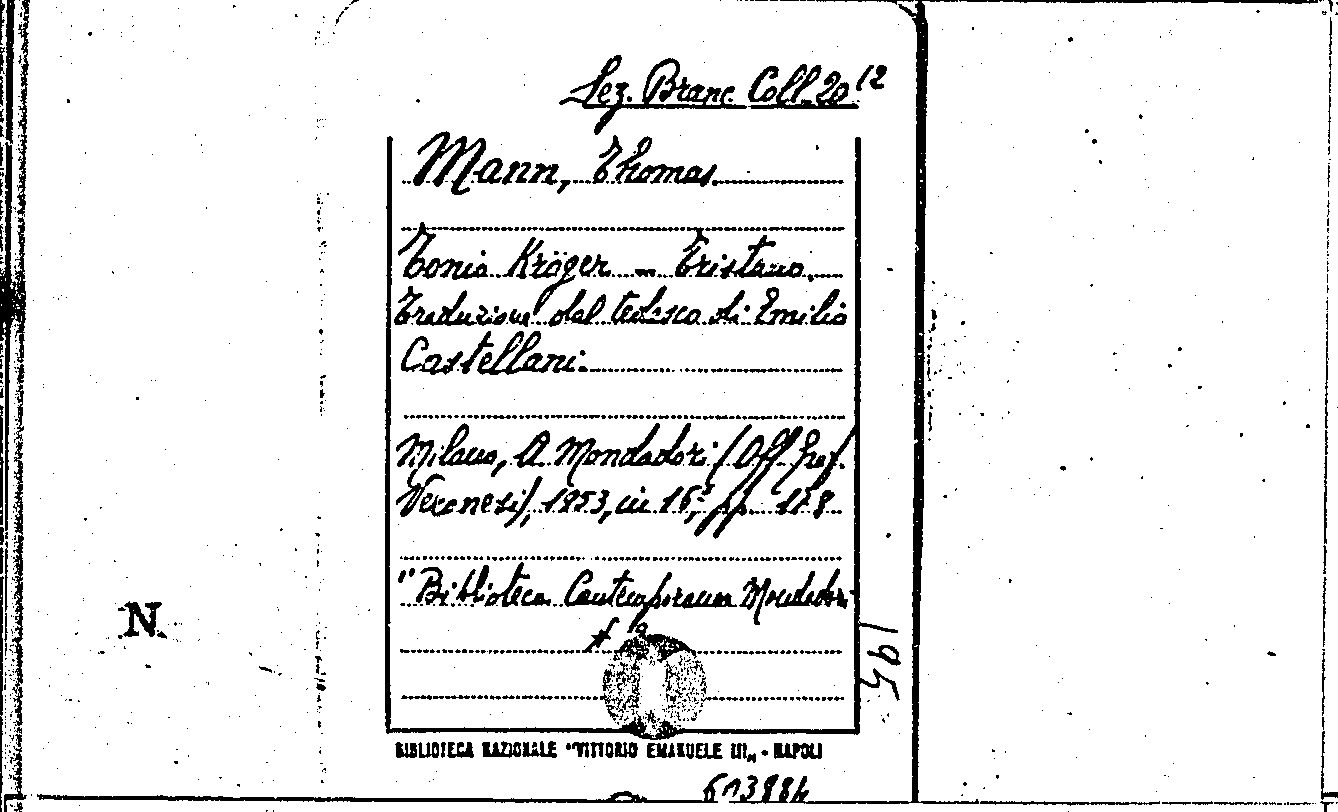 Sez. Branc. Coll. 20 12
Mann, Thomas.
Tonio Kröger - Tristano.
Traduzione dal tedesco di Emilio
Castellani.
Milano, A. Mondadori (Off. Graf.
Veronesi), 1953, in 16°, pp. 178
"Biblioteca Contemporanea Mondadori
195
N.
BIBLIOTECA NAZIONALE "VITTORIO EMANUELE III„ - NAPOLI
613884